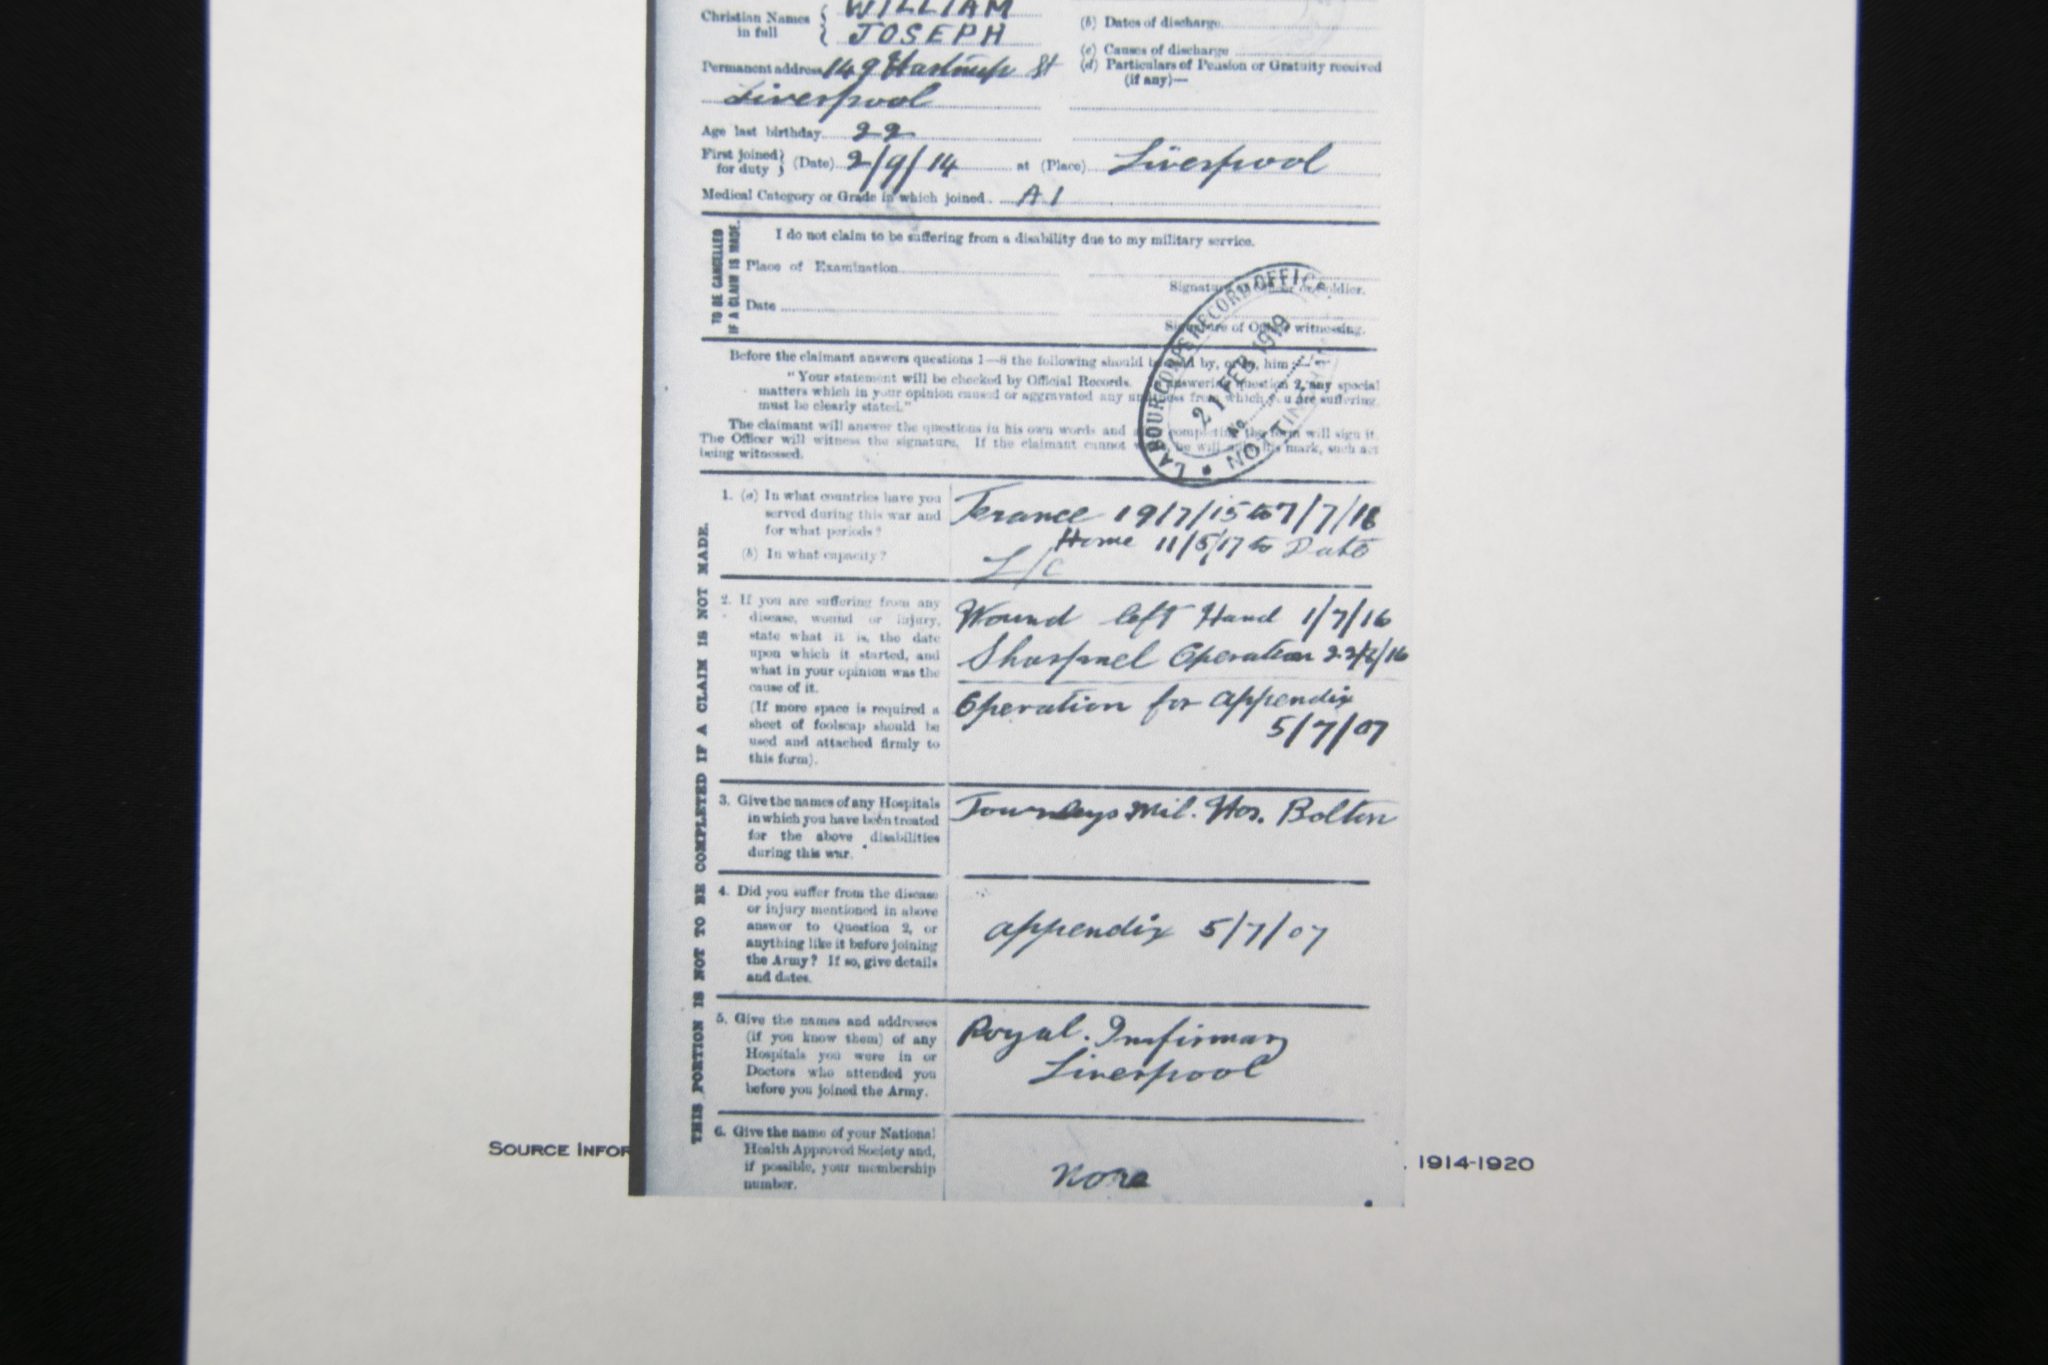 Christian Names in full { WILLIAM
JOSEPH
Permanent address 149 St
Liverpool
Age last birthday 22
First joined for duty } (Date) 2/9/14 at (Place) Liverpool
Medical Category or Grade in which joined A1
(b) Dates of discharge
(c) Causes of discharge
(d) Particulars of Pension or Gratuity received
(if any)—
TO BE CANCELLED
IF A CLAIM IS MADE.
I do not claim to be suffering from a disability due to my military service.
Place of Examination
Signature of Officer or Soldier.
Date
Signature of Officer witnessing.
LABOUR CORPS RECORD OFFICE
21 FEB 1919
No
NOTTINGHAM
Before the claimant answers questions 1—8 the following should be read by, or to, him :—
"Your statement will be checked by Official Records. In answering question 2, any special
matters which in your opinion caused or aggravated any unfitness from which you are suffering
must be clearly stated."
The claimant will answer the questions in his own words and after completing the form will sign it.
The Officer will witness the signature. If the claimant cannot write he will make his mark, such act
being witnessed.
THIS PORTION IS NOT TO BE COMPLETED IF A CLAIM IS NOT MADE.
1. (a) In what countries have you
served during this war and
for what periods?
(b) In what capacity?
France 19/7/15 to 7/7/16
Home 11/5/17 to Date
L/C
2. If you are suffering from any
disease, wound or injury,
state what it is, the date
upon which it started, and
what in your opinion was the
cause of it.
(If more space is required a
sheet of foolscap should be
used and attached firmly to
this form).
Wound left Hand 1/7/16
Sharpnel Operation
Operation for appendix
5/7/07
3. Give the names of any Hospitals
in which you have been treated
for the above disabilities
during this war.
Townleys Mil. Hos. Bolton
4. Did you suffer from the disease
or injury mentioned in above
answer to Question 2, or
anything like it before joining
the Army? If so, give details
and dates.
appendix 5/7/07
5. Give the names and addresses
(if you know them) of any
Hospitals you were in or
Doctors who attended you
before you joined the Army.
Royal. Infirmary
Liverpool
6. Give the name of your National
Health Approved Society and,
if possible, your membership
number.
None
SOURCE INFOR
. 1914-1920